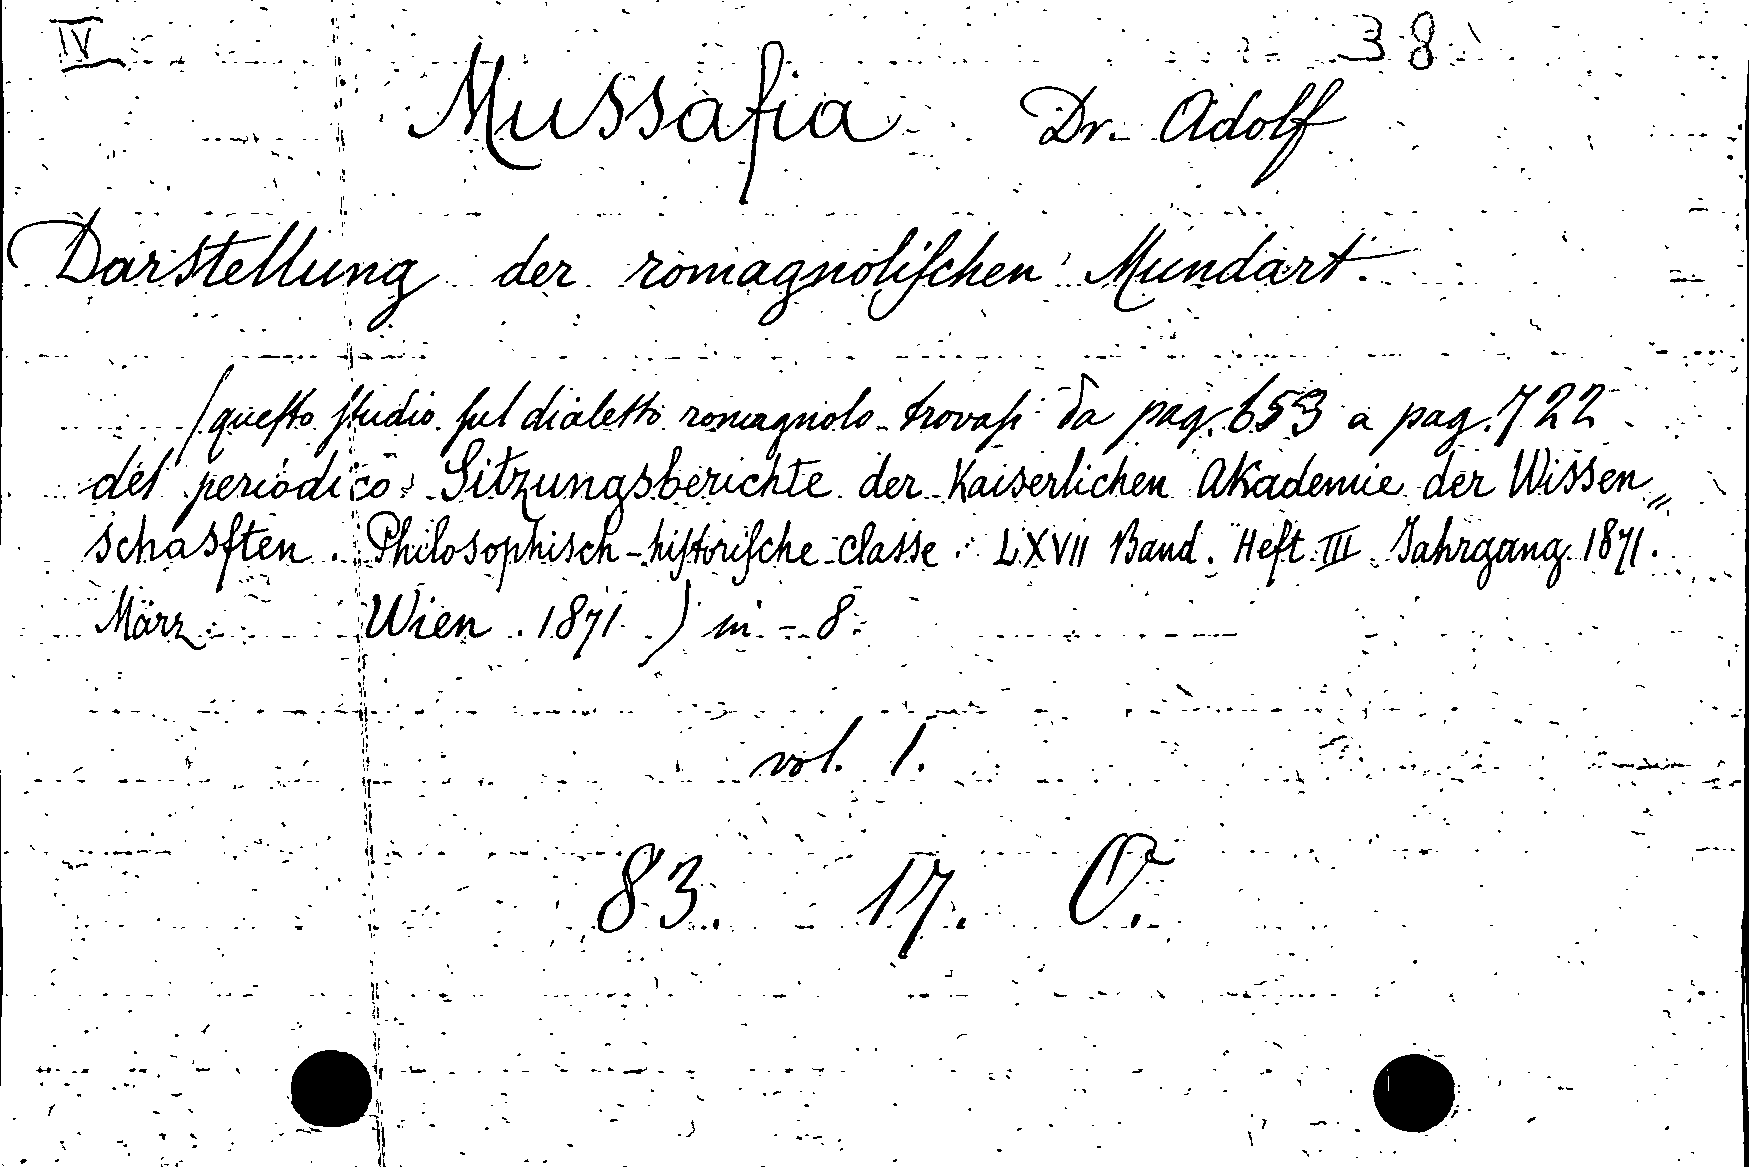 IV 38
Mussafia Dr. Adolf
Darstellung der romagnolischen Mundart.
(questo studio sul dialetto romagnolo trovasi da pag. 653 a pag. 722
del periodico: Sitzungsberichte der Kaiserlichen Akademie der Wissen„
schasften. Philosophisch-historische classe. LXVII Band. Heft III Jahrgang 1871.
März Wien 1871.) in-8.
vol. 1.
83. 17. O.